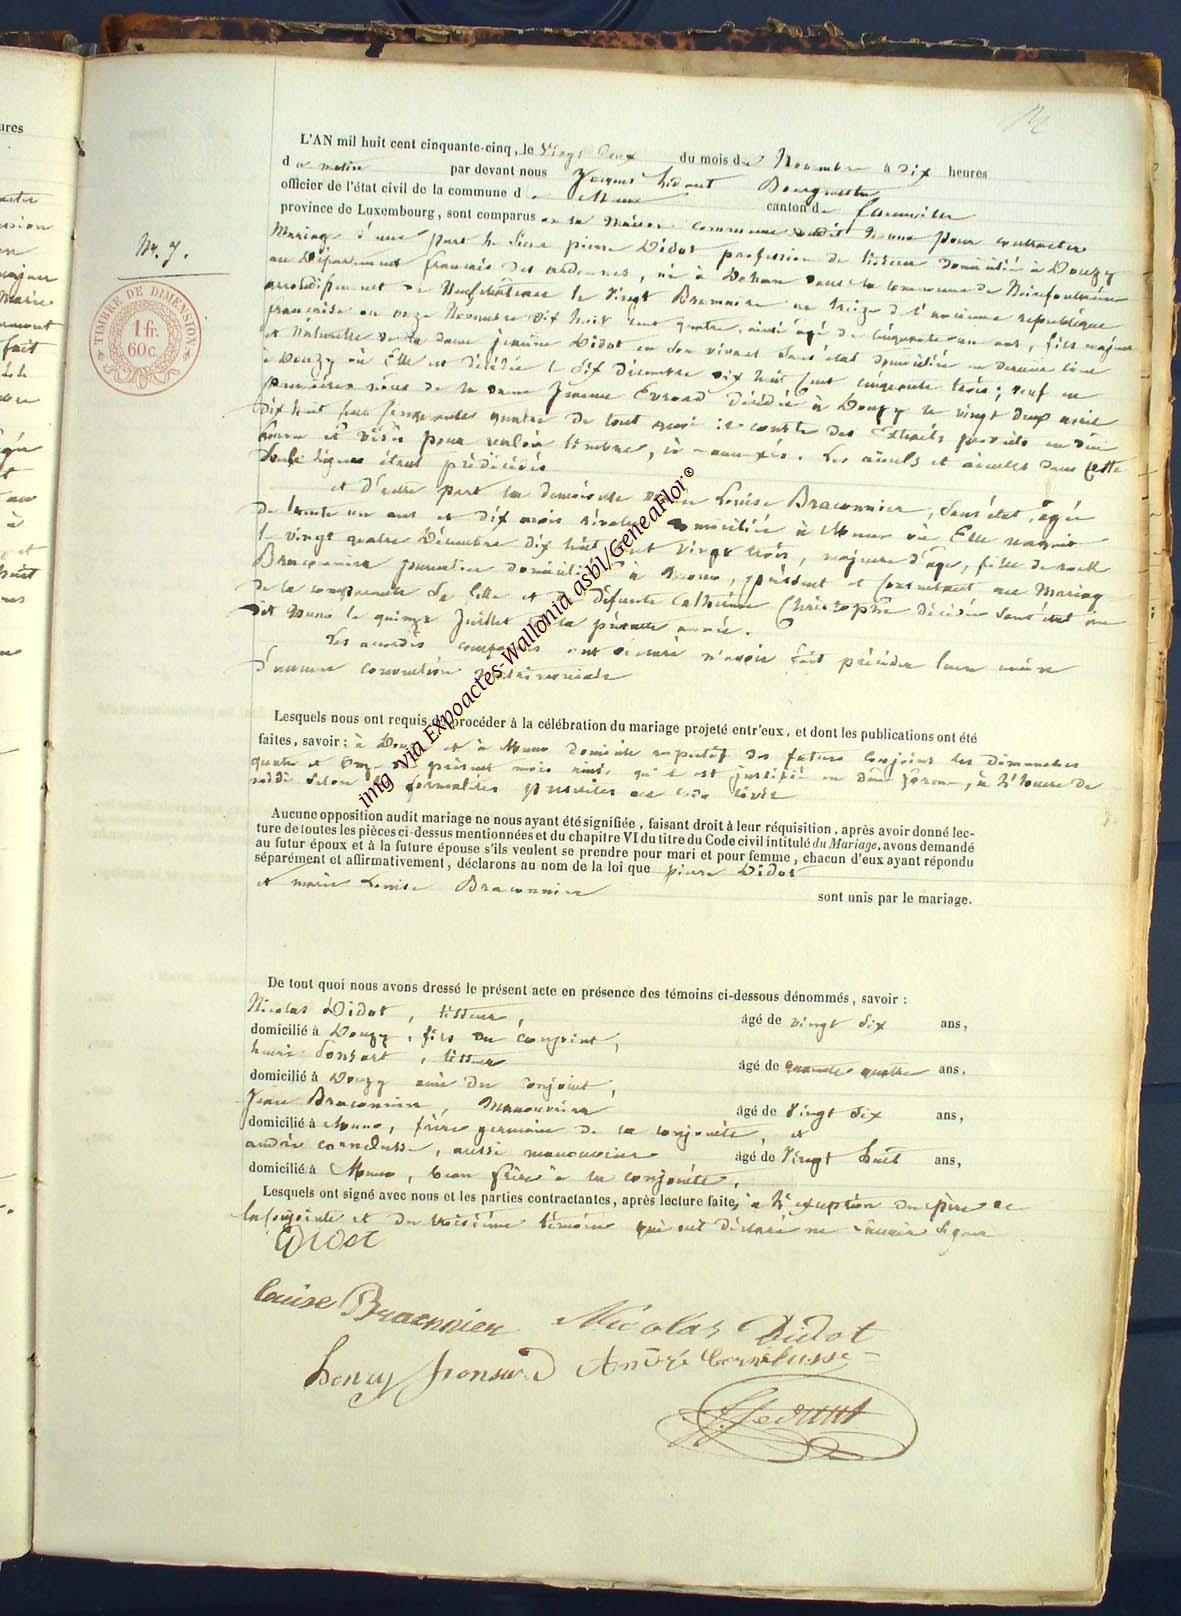 Nº. 7.
TIMBRE DE DIMENSION
1 fr.
60 c.
L'AN mil huit cent cinquante-cinq, le vingt deux du mois de Novembre à dix heures
d u matin par devant nous Jacques Bourgmestre
officier de l'état civil de la commune d e Muno canton de Florenville
province de Luxembourg, sont comparus en la Maison commune dudit Muno pour contracter
Mariage d'une part le sieur pierre Didot profession de tisseur domicilié à Douzy
au Département français des ardennes, né à Dohan dans la commune de Noirefontaine
arrondissement de Neufchâteau le vingt Brumaire an treize de l'ancienne république
française ou onze Novembre dix huit cent quatre, ainsi âgé de cinquante un ans, fils majeur
et Naturelle de la dame jeanne Didot en son vivant sans état domiciliée en dernier lieu
à Douzy où Elle est décédée le dix Décembre dix huit cent cinquante trois; veuf en
premières noces de la dame Jeanne Evrard décédée à Douzy le vingt deux avril
dix huit cent cinquante quatre de tout quoi il conste des Extraits produits en due
forme et visés pour valoir timbre, ci-annexés. Les aïeuls et aïeules dans cette
double lignes étant prédécédés
et D'autre part la demoiselle marie Louise Braconnier, sans état, âgée
de trente un ans et dix mois révolus domiciliée à Muno où Elle naquit
le vingt quatre Décembre dix huit cent vingt trois, majeure d'âge, fille de
Braconnier journalier domicilié à Muno, présent et consentant au Mariage
de la comparante sa fille et de défunte Cathérine Christophe décédée sans état au
dit Muno le quinze Juillet de la présente année.
Les accordés comparants ont déclaré n'avoir fait précéder leur union
d'aucune convention matrimoniale
Lesquels nous ont requis de procéder à la célébration du mariage projeté entr'eux, et dont les publications ont été
faites, savoir: à Douzy et à Muno domicile respectif des futurs conjoints les dimanches
quatre et onze du présent mois ainsi qu'il est justifié en due forme, à l'heure de
midi selon les formalités prescrites au code civil
Aucune opposition audit mariage ne nous ayant été signifiée, faisant droit à leur réquisition, après avoir donné lec-
ture de toutes les pièces ci-dessus mentionnées et du chapitre VI du titre du Code civil intitulé du Mariage, avons demandé
au futur époux et à la future épouse s'ils veulent se prendre pour mari et pour femme, chacun d'eux ayant répondu
séparément et affirmativement, déclarons au nom de la loi que pierre Didot
et marie Louise Braconnier sont unis par le mariage.
De tout quoi nous avons dressé le présent acte en présence des témoins ci-dessous dénommés, savoir :
Nicolas Didot, tisseur, âgé de vingt dix ans,
domicilié à Douzy, fils du conjoint,
henri Ponsart, tisseur âgé de quarante quatre ans,
domicilié à Douzy ami du conjoint,
Jean Braconnier, Manouvrier âgé de Vingt dix ans,
domicilié à Muno, frère germain de la conjointe, et
andré cornelusse, aussi manouvrier âgé de Vingt huit ans,
domicilié à Muno, beau frère à la conjointe.
Lesquels ont signé avec nous et les parties contractantes, après lecture faite, à l'exception du père de
la conjointe et du troisième témoin qui ont déclaré ne savoir signer
Didot
louise Braconnier Nicolas Didot
henry ponsard André Cornélusse
img via Expoactes-Wallonia asbl/GeneaFlor®